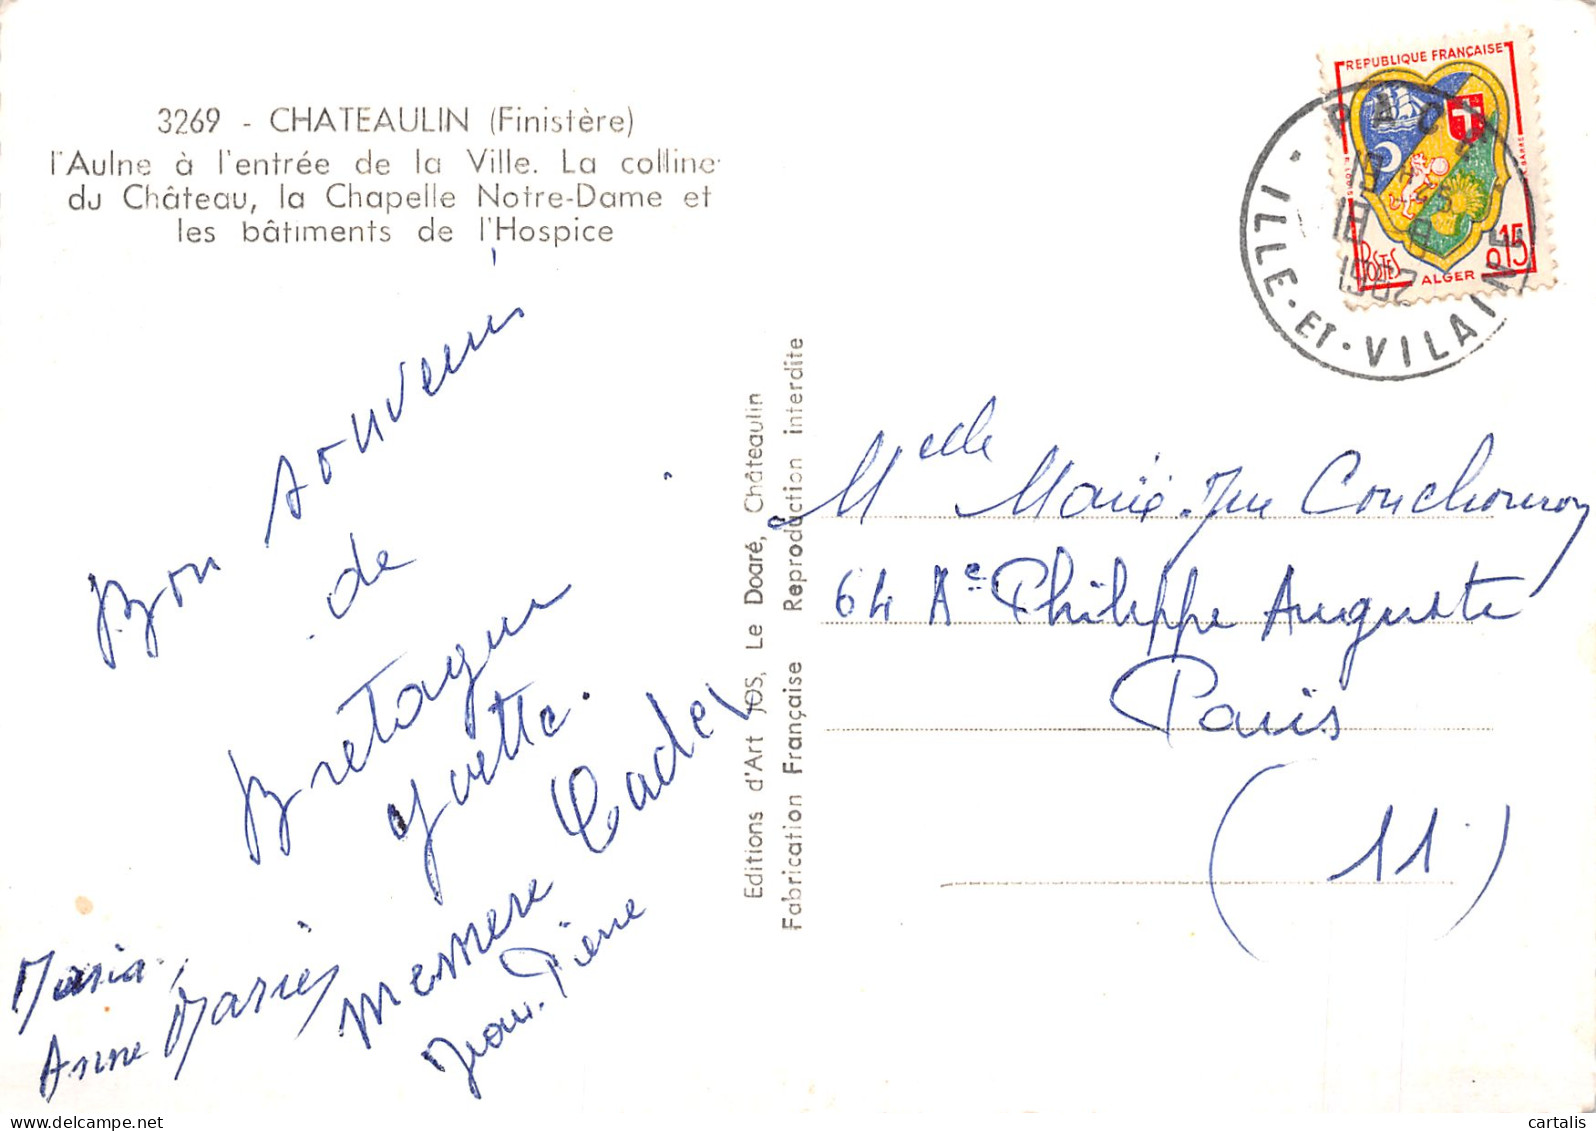 3269 - CHATEAULIN (Finistère)
l'Aulne à l'entrée de la Ville. La colline
du Château, la Chapelle Notre-Dame et
les bâtiments de l'Hospice
REPUBLIQUE FRANÇAISE
POSTES
ALGER
0,15
PACÉ
ILLE-ET-VILAINE
Bon souvenir
de
Bretagne
Yvette.
Maria,
Anne Marie
Jean-Pierre
Editions d'Art JOS, Le Doaré, Châteaulin
Fabrication Française Reproduction interdite
Melle Marie-
64 Ae Philippe Auguste
Paris
(11)
cartalis
www.delcampe.net